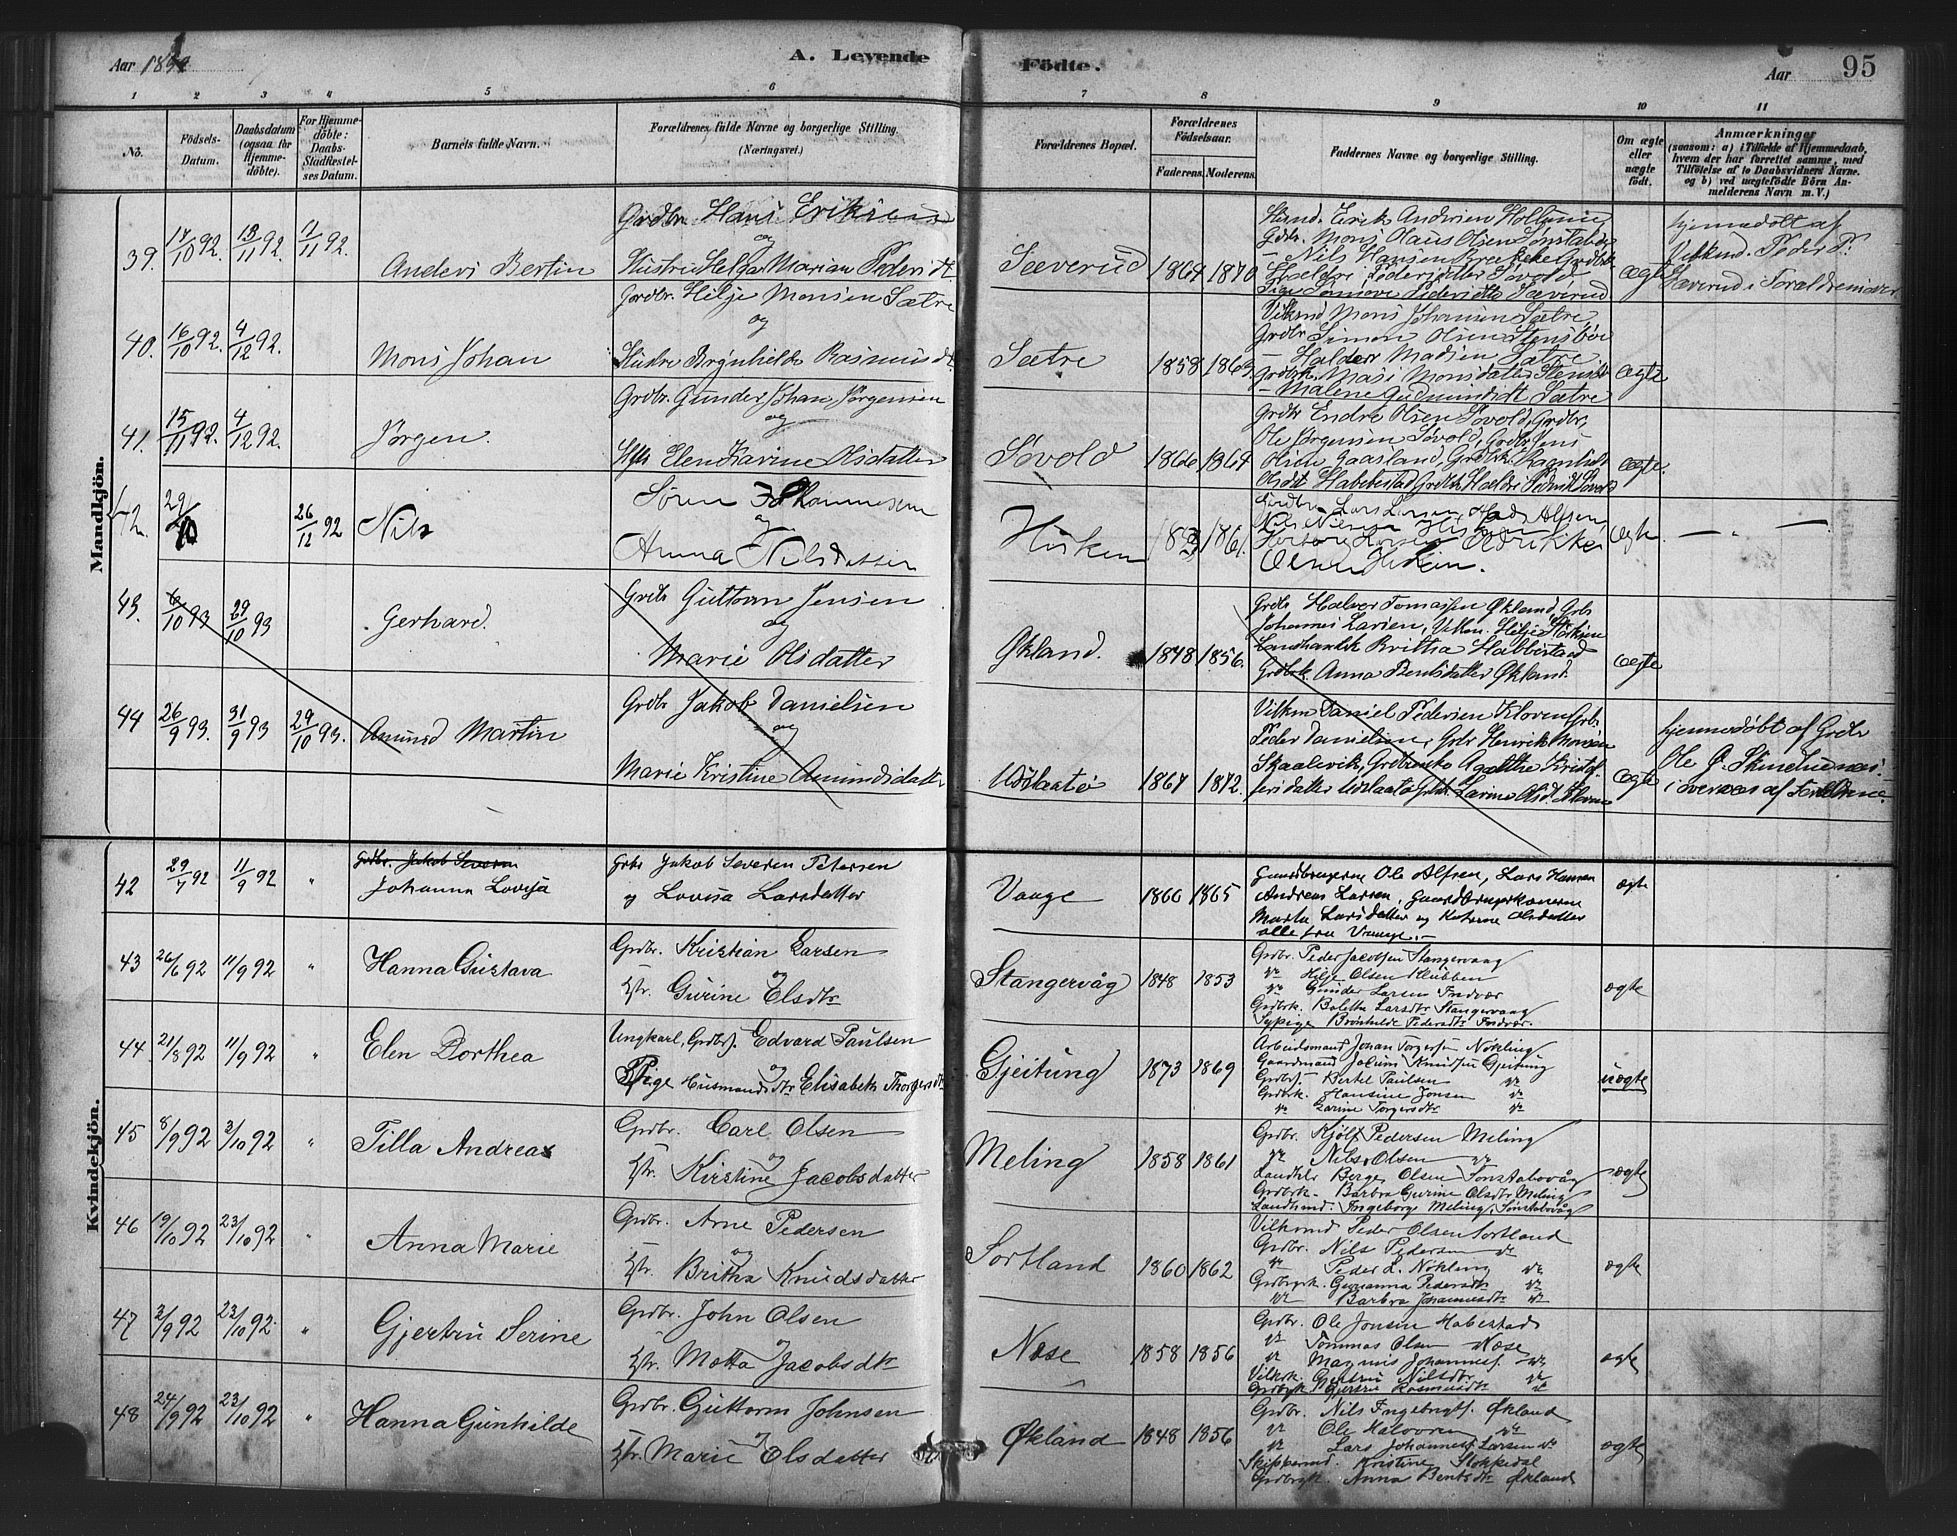 Aar 1892
A. Levende
Födte.
Aar
95
1 2 3 4 5 6 7 8 9 10 11
No.
Födsels-Datum.
Daabsdatum (ogsaa för Hjemme-döbte).
For Hjemme-döbte: Daabs-Stadfæstelses Datum.
Barnets fulde Navn.
Forældrenes fulde Navne og borgerlige Stilling.
(Næringsvei.)
Forældrenes Bopæl.
Forældrenes Födselsaar.
Faderens. Moderens.
Faddernes Navne og borgerlige Stilling.
Om ægte eller uægte födt.
Anmærkninger
(saasom: a) i Tilfælde af Hjemmedaab,
hvem der har forrettet samme, med
Tilföielse af to Daabsvidners Navne.
og b) ved uægtefödte Börn An-
melderens Navn m. V.)
Mandkjön.
39. 17/10 92. 13/11 92. 1/11 92. Anders Bertin
Grdbr. Hans Eriksen
og
Hustru Helga Marian Pedersdt.
Sæverud 1864 1870
Nils Hansen
ægte
hjemmedøbt af
Peder P.
Sæverud i Forældrenes
40. 16/10 92. 4/12 92. Mons Johan
Gordbr. Hilje Monsen Sætre
og
Hustru Brynhilde Rasmusdt.
Sætre 1858 1863.
Vilknd Mons Johannesen Sætre
Grdbr Simon Olsen Stensbøe
Halder Madsen Sætre
Grdbrk. Mari Monsdatter
Malene Gudmundsdt Sætre
ægte
41. 15/11 92. 4/12 92. Jørgen.
Grdbr. Gunder Johan Jørgensen
og
Elen Karine Olsdatter
Søvold 1866 1864
Grdbr Endre Olsen Søvold, Grdbr.
Ole Jørgensen Søvold, Grdbr Jens
Olsen Gaasland, Grdbrk Ragnhild
ægte.
42. 29/10 26/12 92 Nils
Søren Johannesen
og
Anna Nilsdatter
Husken 1861.
Gordbr. Lars Larsen, Mads Alfsen,
Nils Nilsen
Olsen Husken.
ægte. — " —
43. 6/10 93 29/10 93 Gerhard.
Grdbr Guttorm Jensen
og
Marie Olsdatter
Økland. 1848 1856.
Grdbr Halvor Tomassen Økland, Grbr
Johannes Larsen, Hilje
Britha Habbestad
Grdbrk Anna Bentsdatter Økland.
ægte
44 26/9 93. 31/9 93 29/10 93. Amund Martin
Grdbr Jakob Danielsen
og
Marie Kristine Amundsdatter
Udslaatø 1867 1872.
Vilkm Daniel Pedersen Kloven Grbr
Peder Danielsen, Grbr Henrik Monsen
Skaalevik, Agathe Kristof-
fersdatter Udslaatø Grdbk. Larine Olsdt. Kloven
ægte
hjemmedøbt af Grdbr
Ole
i overvær af Forældrene.
Kvindekjön.
42 29/7 92 11/9 92 " Grdbr. Jakob Severin
Johanna Lovisa
Grbr Jakob Severin Petersen
og Lovisa Larsdatter
Vaage 1866 1865
Gaardbrugerne Ole Alfsen, Lars Hansen
Andreas Larsen, Gaardbrugerkonerne
Marta Larsdatter og Katrine Olsdatter
alle fra Vaage.—
ægte
43 26/6 92 11/9 92 " Hanna Gustava
Grdbr. Kristian Larsen
og
Hstr. Gurine Elsdtr
Stangervåg 1848 1853
Grdbr. Peder Jacobsen Stangervaag
do Hilje Olsen Klubben
do Gunder Larsen Indvær
Grdbrk. Boletta Larsdtr Stangervaag
Pige Brønhilde Pedersdtr Indvær.
ægte
44 21/8 92 11/9 92 " Elen Dorthea
Ungkarl, Grdbrs. Edvard Paulsen
og
Pige Husmandsdtr Elisabeth Thorgersdtr
Gjeitung 1873 1869
Arbeidsmand Johan Torgersen Nøkling
Gaardmand Joakim Knudsen Gjeitung
Grdbrs. Bertel Paulsen do
Grdbrk. Hansine Jonsen do
do Larine Torgersdtr do
uægte
45 8/9 92 2/10 92 " Tilla Andrea
Grdbr. Carl Olsen
og
Hstr. Kirstine Jacobsdatter
Meling 1858 1861
Grdbr. Kjølf Pedersen Meling
do Nils Olsen do
Landhlr Berge Olsen Tønstabovåg
Grdbrk. Barbra Gurine Olsdtr Meling
Ingeborg Meling, Tønstabovåg
ægte
46 19/10 92 23/10 92 " Anna Marie
Grdbr. Arne Pedersen
og
Hstr. Britha Knudsdatter
Sortland 1860 1862
Vilkmnd Peder Olsen Sortland
Grdbr. Nils Pedersen do
do Peder L. Nøkling do
Grdbrgrk. Gurianna Pedersdtr do
do Barbra Johannesdtr do
ægte
47 2/9 92 23/10 92. " Gjertru Serine
Grdbr. John Olsen
og
Hstr. Motta Jacobsdtr
Næse 1858 1856
Grdbr. Ole Jonsen Habestad
do Tommas Olsen Næse
do Magnus Johannesf. do
Vilkrk. Gjertru Nilsdtr do
Grdbrgk Gjertrie Rasmusdtr do
ægte
48 24/9 92 23/10 92 " Hanna Gunhilde
Grdbr. Guttorm Johnsen
og
Hstr. Marie Olsdatter
Økland 1848 1856
Grdbr. Nils Ingebrigts. Økland
do Ole Halvorsen do
do Lars Johannesf. Larsen do
Skippermd. Kristine Stokkedal
Grdbrgk Anna Bentsdtr Økland
ægte